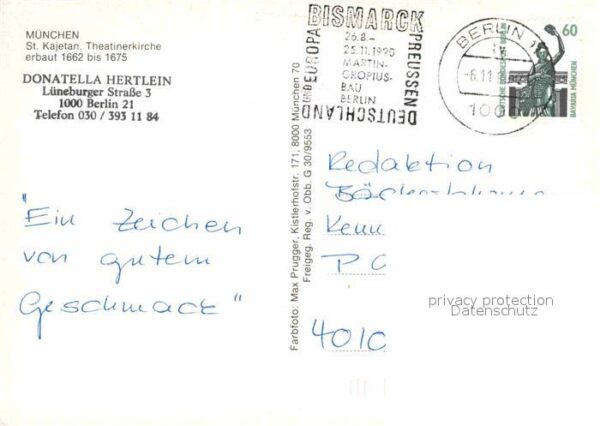 MÜNCHEN
St. Kajetan, Theatinerkirche
erbaut 1662 bis 1675
DONATELLA HERTLEIN
Lüneburger Straße 3
1000 Berlin 21
Telefon 030 / 393 11 84
"Ein Zeichen
von gutem
Geschmack"
Farbfoto: Max Prugger, Kistlerhofstr. 171, 8000 München 70
Freigeg. Reg. v. Obb. G 30/9553
BISMARCK
PREUSSEN
DEUTSCHLAND
UND EUROPA
26.8.–
25.11.1990
MARTIN-
GROPIUS-
BAU
BERLIN
BERLIN 1
-6.11
100
60
DEUTSCHE BUNDESPOST BERLIN
BAVARIA MÜNCHEN
Redaktion
Kenn
P
4010
privacy protection
Datenschutz